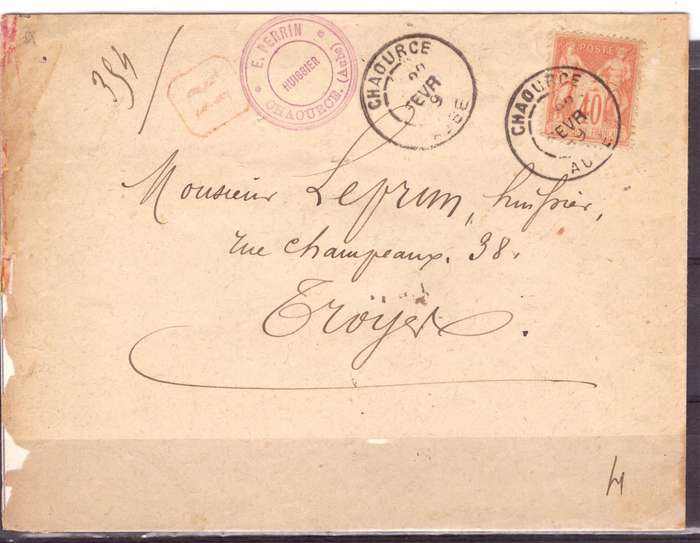 354
E. PERRIN
HUISSIER
CHAOURCE. (Aube)
CHAOURCE
FEVR
AUBE
POSTE
40
CHAOURCE
FEVR
AUBE
Monsieur Leprun, huissier,
rue Champeaux. 38.
Troyes.
4